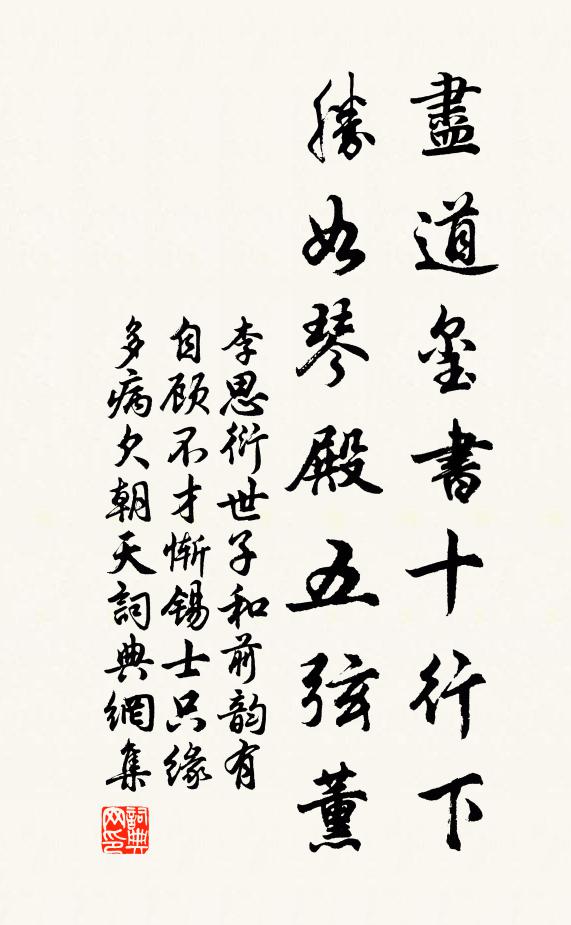 盡道璽書十行下
勝如琴殿五弦薰
李思衍世子和前韵有
自顾不才惭锡士只缘
多病欠朝天詞典網集
詞典
网印